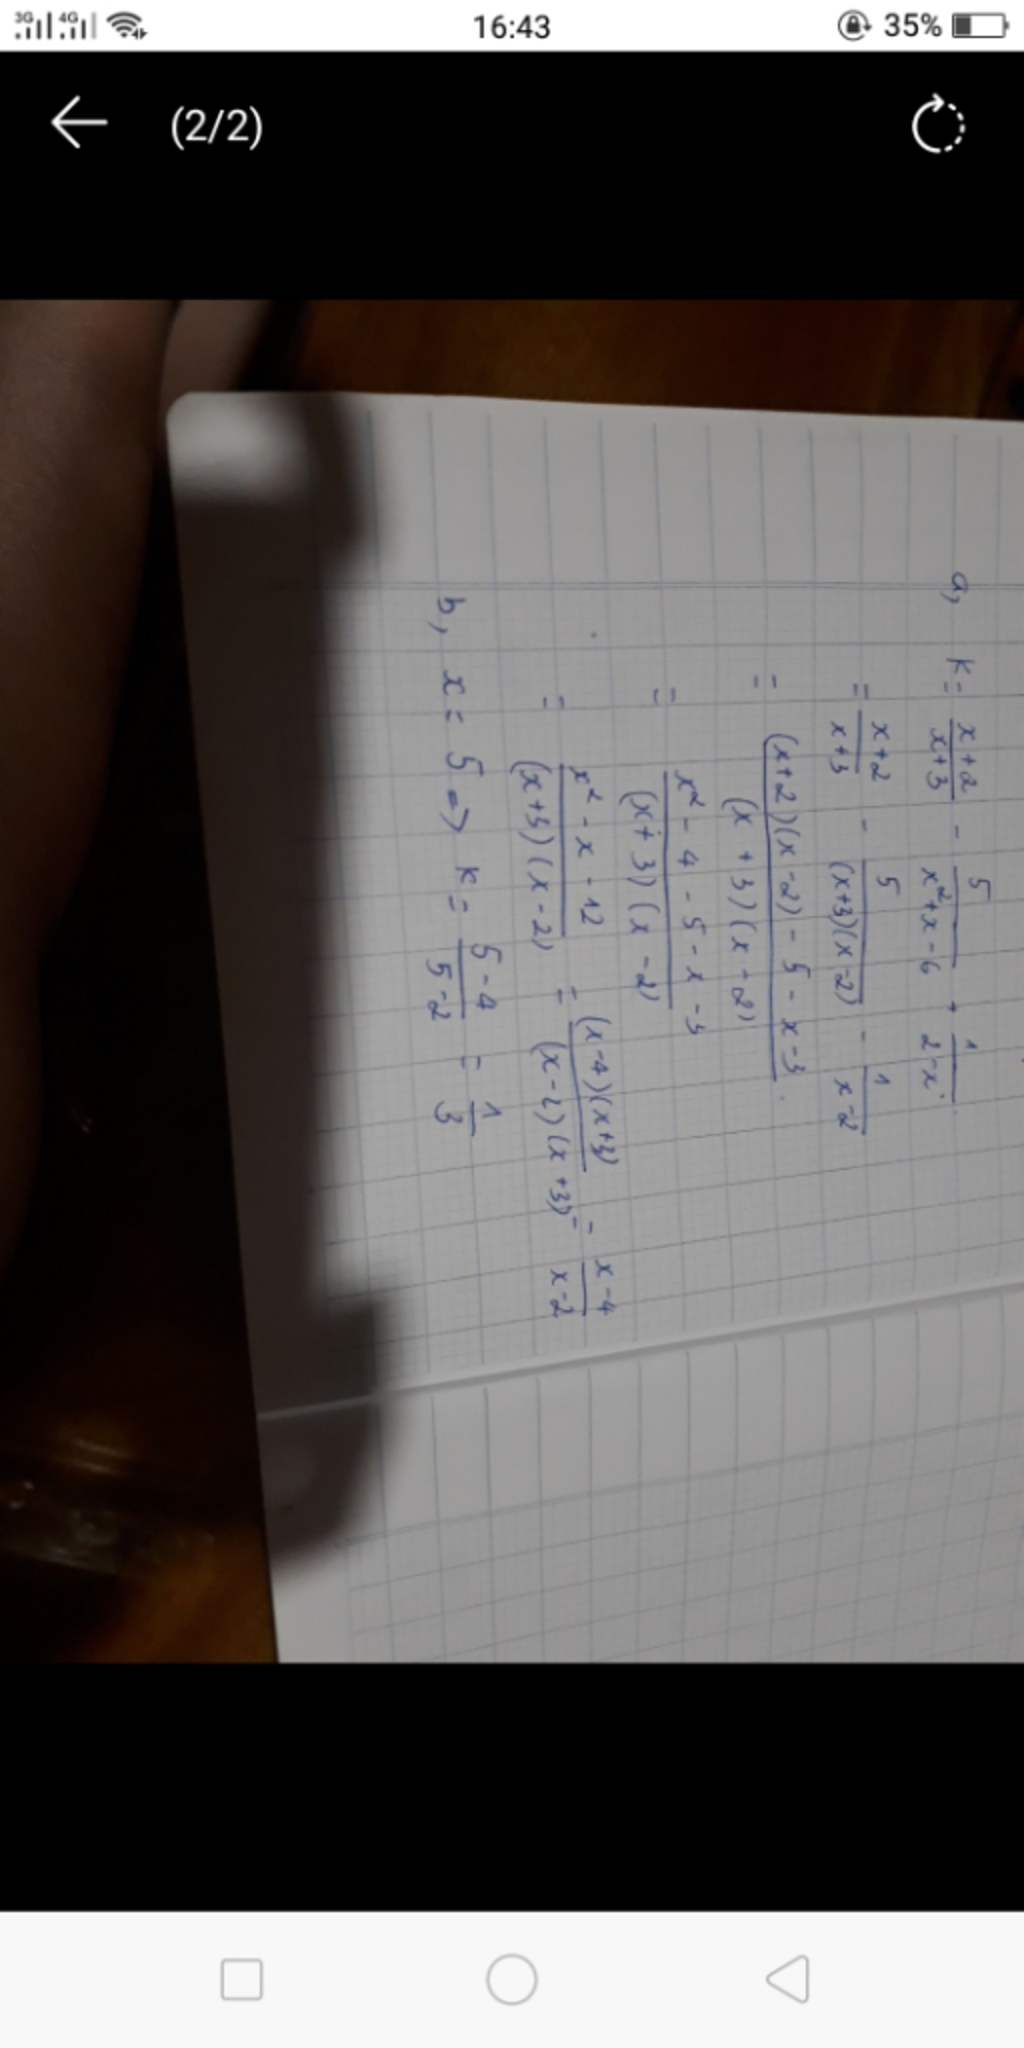 3G 4G 16:43 35%
(2/2)
a, K = \frac{x+2}{x+3} - \frac{5}{x^2+x-6} + \frac{1}{2-x}
= \frac{x+2}{x+3} - \frac{5}{(x+3)(x-2)} - \frac{1}{x-2}
= \frac{(x+2)(x-2) - 5 - x - 3}{(x+3)(x-2)}
= \frac{x^2 - 4 - 5 - x - 3}{(x+3)(x-2)}
= \frac{x^2 - x - 12}{(x+3)(x-2)} = \frac{(x-4)(x+3)}{(x-2)(x+3)} = \frac{x-4}{x-2}
b, x = 5 => K = \frac{5-4}{5-2} = \frac{1}{3}